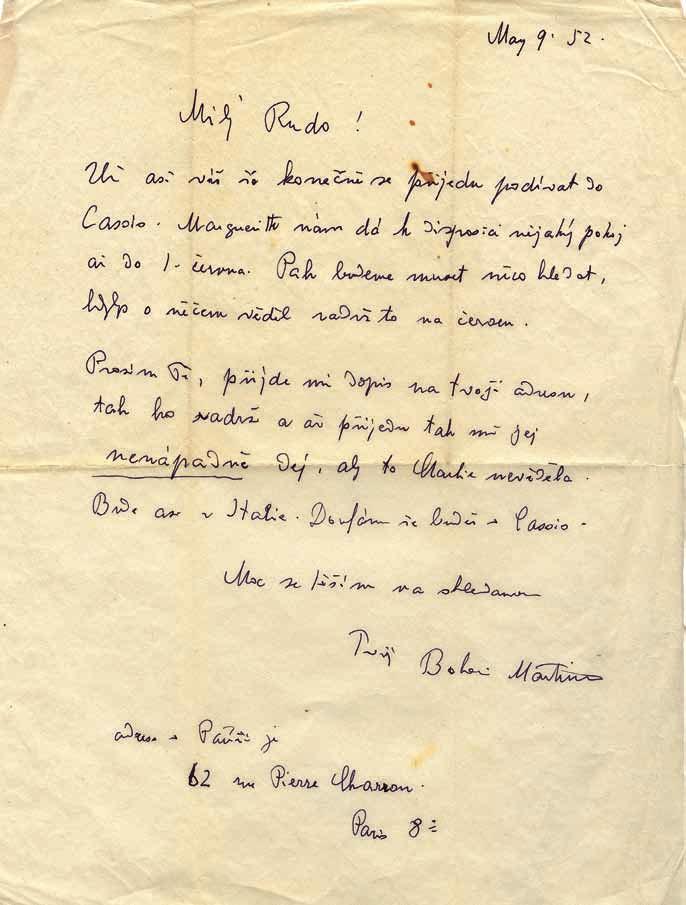 May 9. 52.
Milý Rudo!
Už asi víš že konečně se přijedu podívat do
Cassis. Marguerith nám dá k disposici nějaký pokoj
až do 1. června. Pak budeme muset něco hledat,
kdybys o něčem věděl zadrž to na červen.
Prosím Tě, přijde mi dopis na tvoji adresu,
tak ho zadrž a až přijedu tak mě jej
nenápadně dej, aby to Charlie nevěděla.
Bude ase z Italie. Doufám že budeš v Cassis.
Moc se těším na shledanou
Tvůj Bohuš Martinů
adresa v Paříži je
62 rue Pierre Charron.
Paris 8e